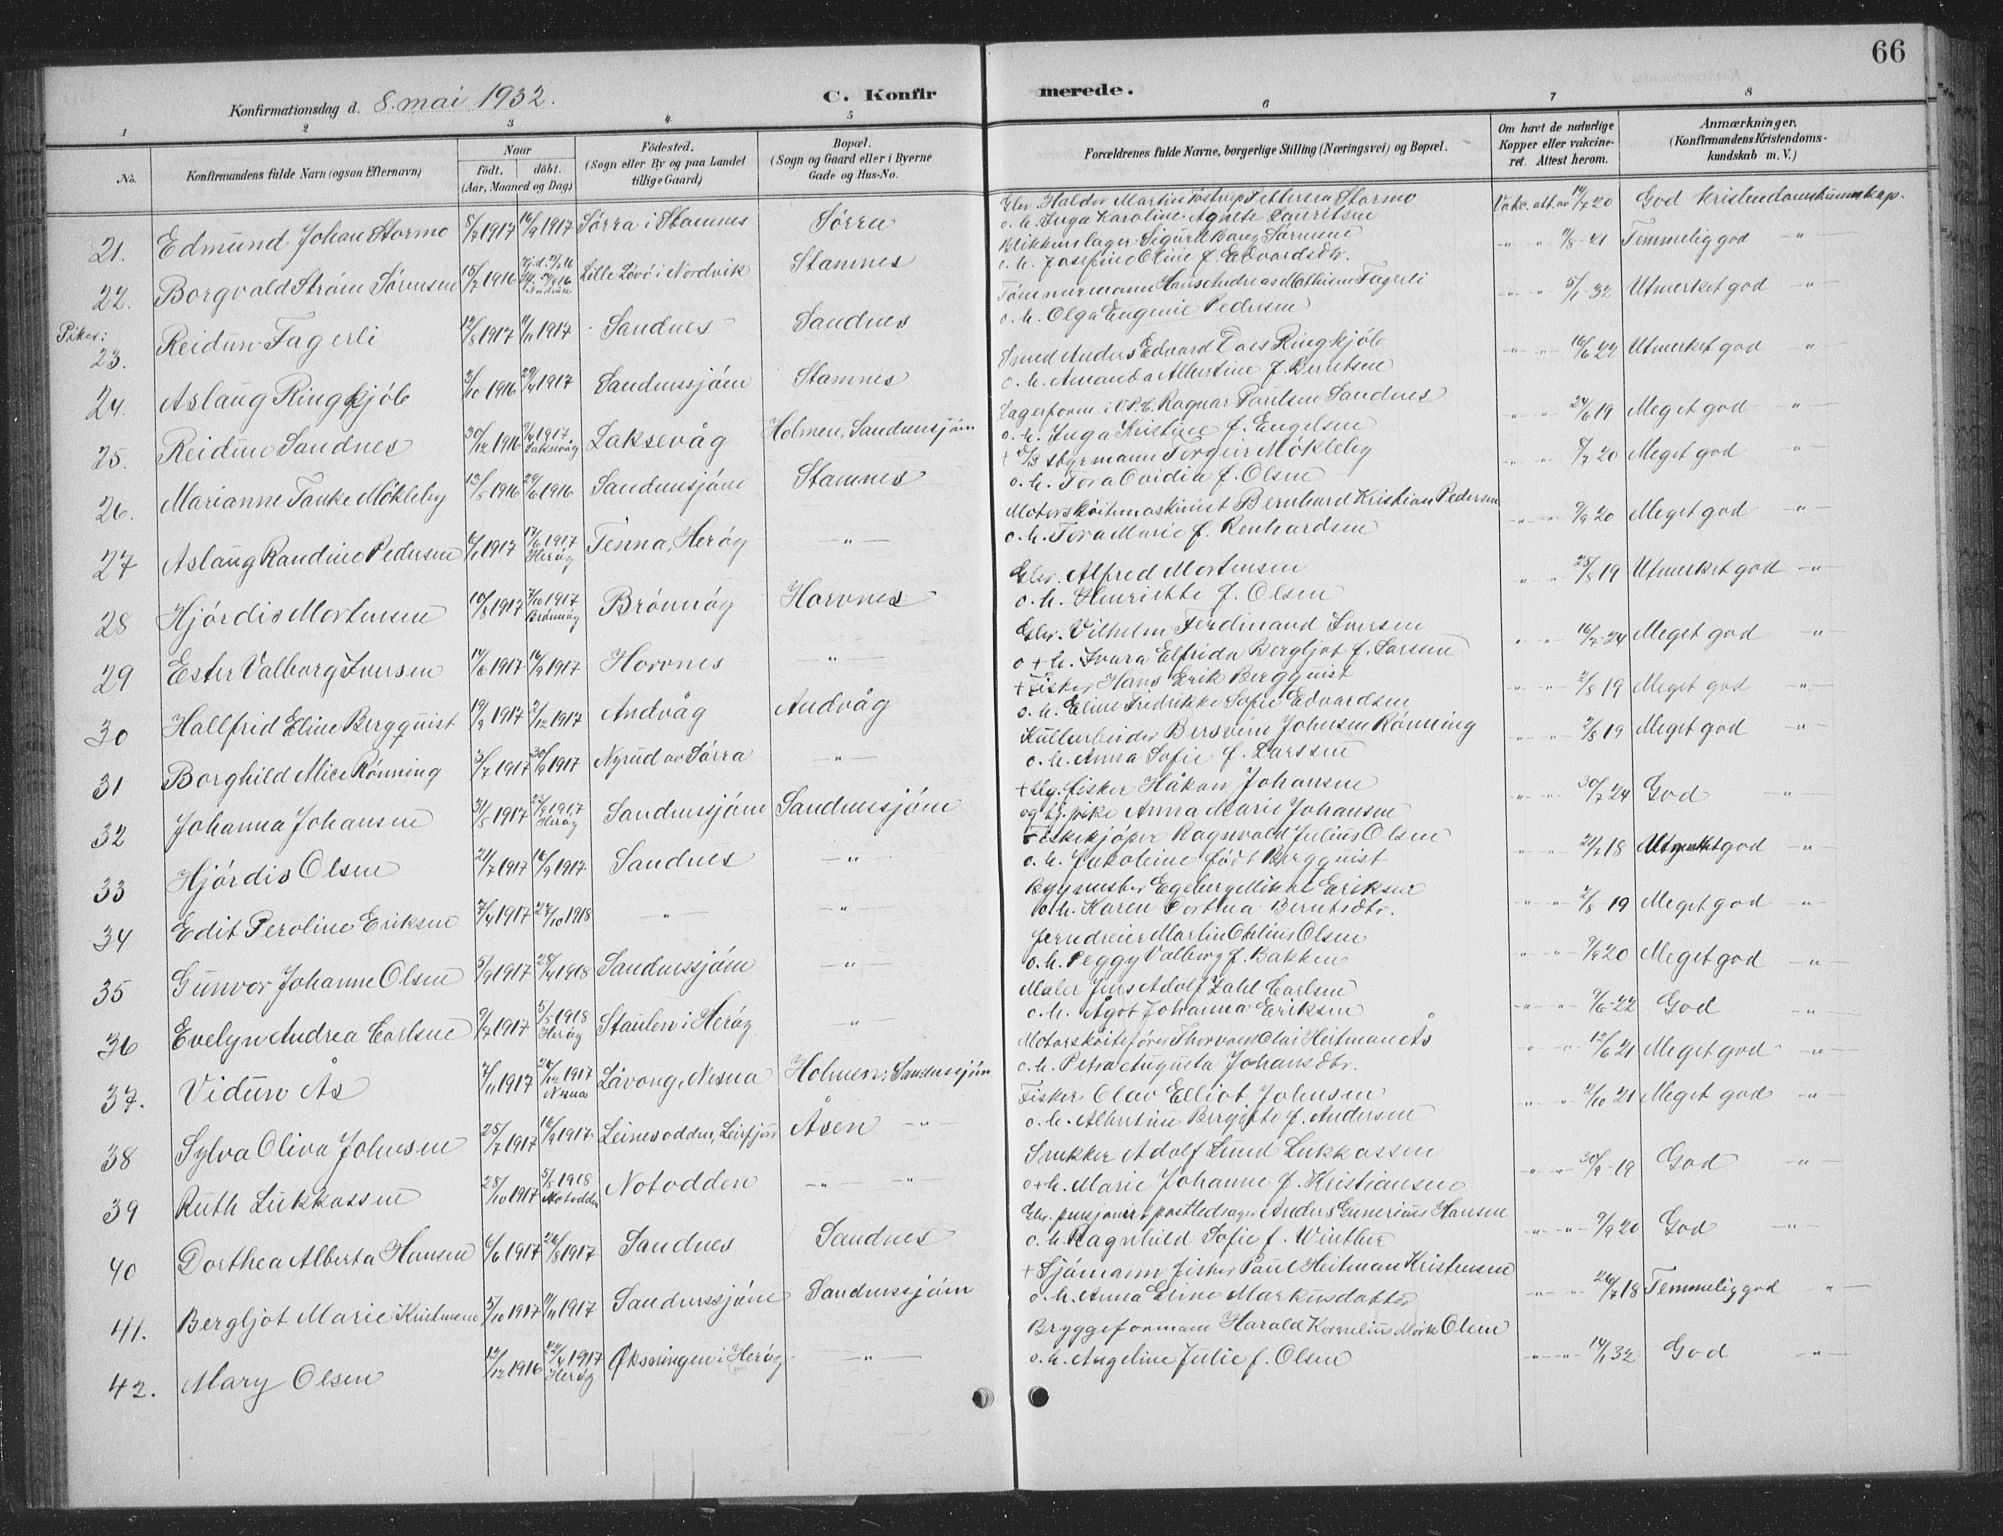 66
Konfirmationsdag d. 8. mai 1932.
C. Konfirmerede.
1 2 3 4 5 6 7 8
No.
Konfirmandens fulde Navn (ogsaa Efternavn)
Naar
født. døbt.
(Aar, Maaned og Dag)
Fødested.
(Sogn eller By og paa Landet
tillige Gaard)
Bopæl.
(Sogn og Gaard eller i Byerne
Gade og Hus-No.
Forældrenes fulde Navne, borgerlige Stilling (Næringsvei) og Bopæl.
Om havt de naturlige
Kopper eller vakcine-
ret. Attest herom.
Anmærkninger.
(Konfirmandens Kristendoms-
kundskab m. V.)
21. Edmund Johan Stormo 1917 1917 Sørra i Stamnes Sørra Halder Martin Pettersen Stormo
o. h. Inga Karoline Agnete Lauritsen Vakc. att. av 20 God kristendomskunnskap.
22. Borgvald Strøm Sørensen 1916 Lille Løvö i Nordvik Stamnes Blikkenslager Sigurd Bang Sørensen
o. h. Josefine Oline f. Edvardsdtr. " " 21 Temmelig god "
Piker:
23. Reidun Fagerli 12/8 1917 11/11 1917 Sandnes Sandnes Tømmermann Hans Andreas Mathisen Fagerli
o. h. Olga Eugenie Pedersen " " 5/1 32 Utmerket god "
24. Aslaug Ringkjøb 3/10 1916 29/4 1917 Sandnessjøen Stamnes Smed Anders Edvard Ringkjøb
o. h. Amanda Albertine f. Berntsen " " Utmerket god "
25. Reidun Sandnes 30/12 1916 9/4 1917 Laksevåg Laksevåg Holmen, Sandnessjøen Lagerform. i Ragnar Paulsen Sandnes
o. h. Inga Kristine f. Engelsen " " 24/6 19 Meget god "
26. Marianne Tanke Møkleby 13/5 1916 29/6 1916 Sandnessjøen Stamnes + styrmann Torgeir Møkleby
o. h. Tora Ovidia f. Olsen " " 20 Meget god "
27 Aslaug Randine Pedersen 6/1 1917 17/6 1917 Herøy Tenna, Herøy " Motorskøitemaskinist Bernhard Kristian Pedersen
o. h. Tora Marie f. Renhardsen " " 9/9 20 Meget god "
28 Hjørdis Mortensen 10/8 1917 7/10 1917 Brønnøy Brønnøy Horvnes Gbr. Alfred Mortensen
o. h. Henriette f. Olsen " " 25/8 19 Utmerket god "
29 Ester Valborg Iversen 17/6 1917 16/9 1917 Horvnes " Gbr. Vilhelm Ferdinand Iversen
o + h. Ivara Elfrida Bergljot f. Larsen " " 16/7 24 Meget god "
30 Hallfrid Eline Bergquist 19/9 1917 2/12 1917 Andvåg Andvåg + Fisker Hans Erik Bergquist
o. h. Eline Fredrikke Sofie Edvardsen " " 2/8 19 Meget god "
31 Borghild Alice Rønning 3/7 1917 30/9 1917 Nyrud av Sørra " Kullarbeider Bersvein Johnsen Rønning
o. h. Anna Sofie f. Larssen " " 2/8 19 Meget god "
32 Johanna Johansen 31/5 1917 23/9 1917 Herøy Sandnessjøen Sandnessjøen + Ug. fisker Håkon Johansen
og tj. pike Anna Marie Johansen " " 30/7 24 God "
33 Hjørdis Olsen 21/7 1917 16/9 1917 Sandnes " Fiskekjøper Ragnvald Julius Olsen
o. h. Jakobine født Bergquist " " 21/7 18 Utmerket god "
34 Edit Peroline Eriksen 7/4 1917 27/10 1918 " " Byggmester Egeberg Mikal Eriksen
o. h. Karen Dorthea Berntsdtr. " " 2/8 19 Meget god "
35 Gunvor Johanne Olsen 5/9 1917 28/4 1918 Sandnessjøen " Jerndreier Martin Oklius Olsen
o. h. Peggy Valborg f. Bakken " " 9/9 20 Meget god "
36 Evelyn Andrea Carlsen 9/7 1917 5/5 1918 Herøy Staulen i Herøy " Maler Jens Adolf Zahl Carlsen
o. h. Ågot Johanna Eriksen " " 9/6 22 God "
37. Vidun Ås 7/11 1917 26/12 1917 Nesna Låvong, Nesna Holmen, Sandnessjøen Motorskøitefører Thorvald Olai Heitman Ås
o. h. Petra Augusta Johansdtr. " " 12/6 21 Meget god "
38 Sylva Oliva Johnsen 25/7 1917 16/9 1917 Leinesodden, Leirfjord Åsen " Fisker Olav Elliot Johnsen
o. h. Albertine Bergitte f. Andersen " " 2/10 21 Meget god "
39 Ruth Lukkassen 28/10 1917 5/5 1918 Notodden Notodden " " Snekker Adolf Lund Lukkassen
o + h. Marie Johanne f. Kristiansen " " 30/9 19 God "
40 Dorthea Alberta Hansen 6/6 1917 26/8 1917 Sandnes Sandnes Gbr. pensjonert postledsager Anders Gunerius Hansen
o. h. Ragnhild Sofie f. Winther " " 9/9 20 God "
41. Bergljot Marie Kristensen 5/10 1917 11/11 1917 Sandnessjøen Sandnessjøen + Sjømann fisker Paul Heitman Kristensen
o. h. Anna Eline Markusdatter " " 26/7 18 Temmelig god "
42. Mary Olsen 12/12 1916 22/4 1917 Herøy Øksningen i Herøy " Bryggeformann Harald Kornelius Mørk Olsen
o. h. Angeline Julie f. Olsen " " 14/1 32 God "